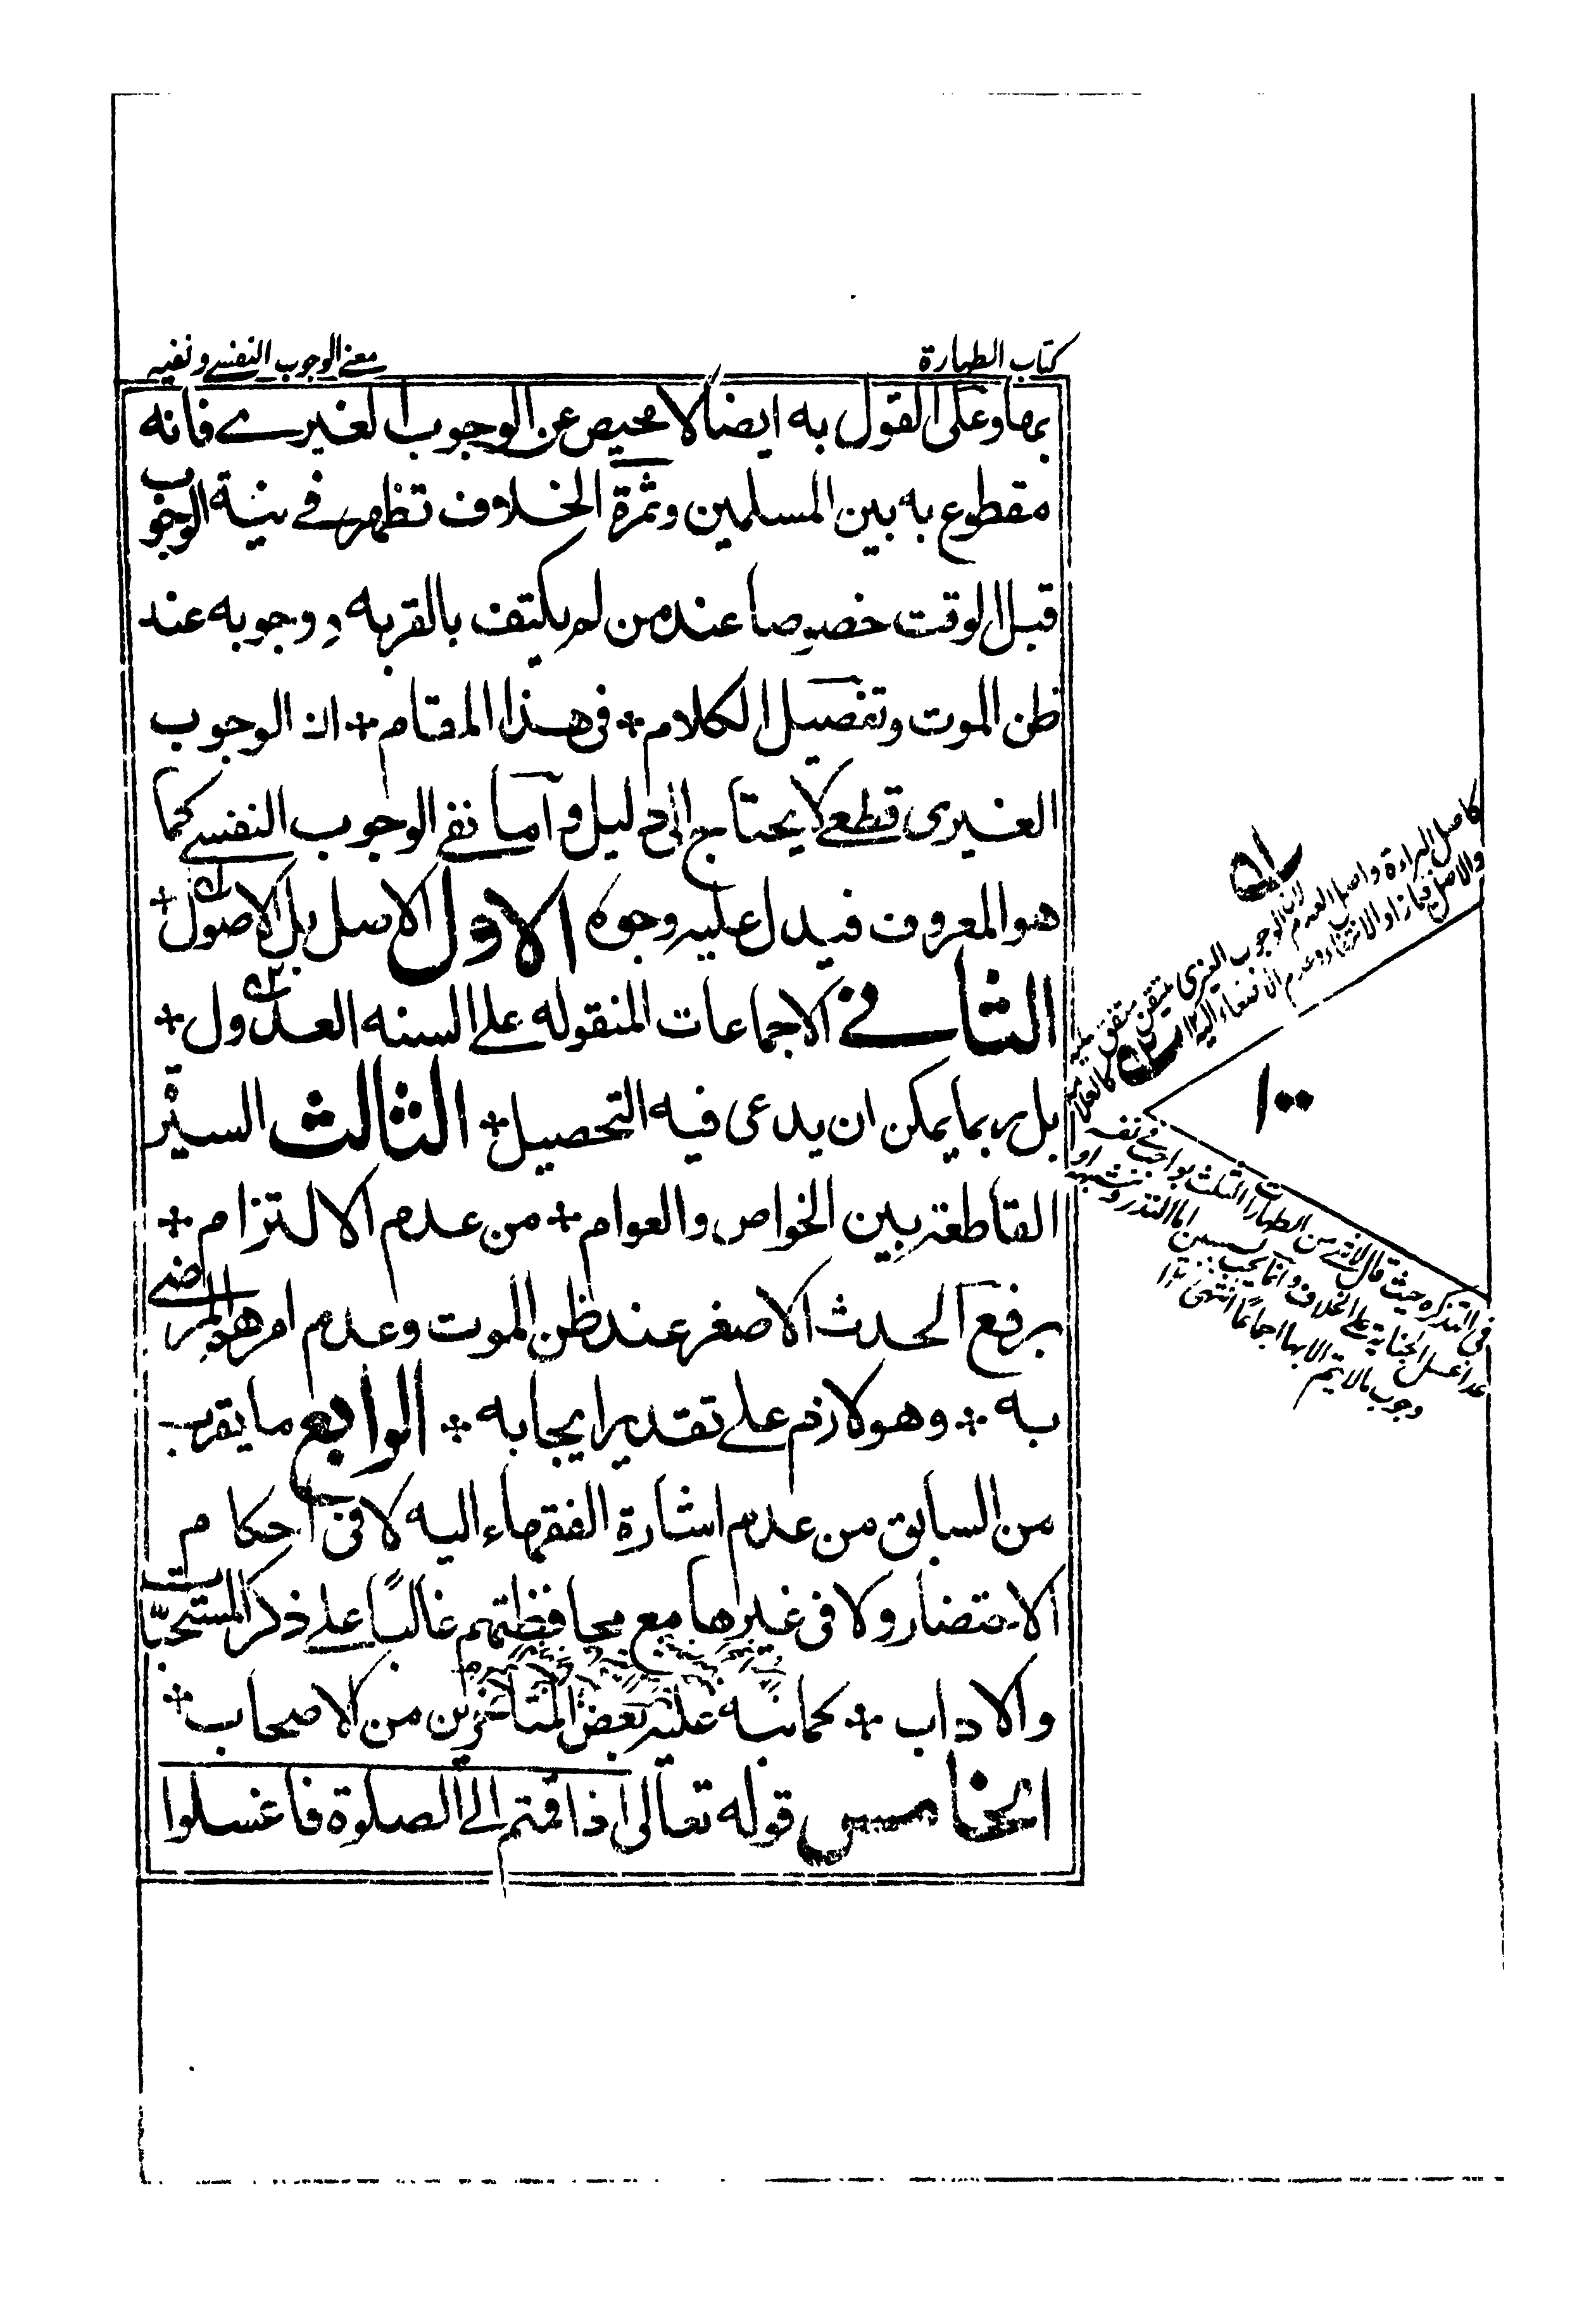 كتاب الطهارة
معنى الوجوب النفسي ونفيه
بها وعلى القول به ايضا لا محيص عن الوجوب الغيرے فانه
مقطوع به بين المسلمين وثمرة الخلاف تظهر فے نية الوجوب
قبل الوقت خصوصا عند من لم يكتف بالقربه و وجوبه عند
ظن الموت وتفصيل الكلام + فى هذا المقام + ان الوجوب
الغيرى قطعے لا يحتاج الى دليل و اما نفے الوجوب النفسے كما
هو المعروف فيدل عليه وجوه الاول الاصل بل الاصول +
الثانے الاجماعات المنقوله على السنه العدول +
بل ربما يمكن ان يدعى فيه التحصيل + الثالث السيرة
القاطعة بين الخواص والعوام + من عدم الالتزام +
برفع الحدث الاصغر عند ظن الموت وعدم امرهم المرضے
به + وهو لازم على تقدير ايجابه + الرابع ما يقرب
من السابق من عدم اشارة الفقهاء اليه لا فى احكام
الاحتضار ولا فى غيرها مع محافظتهم غالبًا على ذكر المستحبّات
والاداب + كما نبه عليه بعض المتأخرين من الاصحاب +
الخامس قوله تعالى اذا قمتم الى الصلوة فاغسلوا
كاصل البراءة واصل العدم لان الوجوب الغيرى متيقن
والاصل فيما زاد الانتفاء وعدم
١٠٠
فى التذكره حيث قال لا شے من الطهارات الثلث بواجب فے نفسه
عدا غسل الجنابة على الخلاف وانما يجب بسبب اما النذر وشبهه او
وجوب ما لا يتم الا بها اجماعًا انتهى